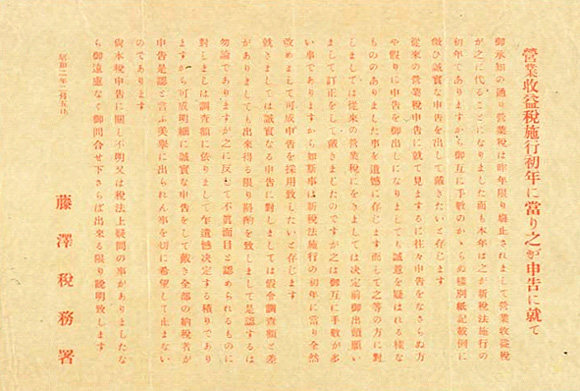 営業收益稅施行初年に當り之が申告に就て
御承知の通り營業稅は昨年限り廢止されまして營業收益稅
が之に代ることになりました而も本年は之が新稅法施行の
初年でありますから御互に手數のかゝらぬ樣別紙記載例に
倣ひ誠實な申告を出して戴きたいと存じます
從來の營業稅申告に就て見まするに往々申告をなさらぬ方
や假りに申告を御出しになりましても誠意を疑はれる樣な
もののありました事を遺憾に存じます而して之等の方に對
しましては從來の營業稅にをきましては決定前御出頭願い
まして訂正をして戴きましたのですが之は御互に手數が多
い事でありますから如斯事は新稅法施行の初年に當り全然
改めまして可成申告を採用致したいと存じます
就きましては誠實なる申告に對しましては假令調査額と差
がありましても出來得る限り斟酌を致しまして是認するは
勿論でありますが之に反して不眞面目と認められるものに
對しましては調査額に依りまして乍遺憾決定する積りであり
ますから可成明細に誠實な申告をして戴き全部の納稅者が
申告是認と言ふ美擧に出られん事を切に希望して止まない
のであります
尙本稅申告に關し不明又は稅法上疑問の事がありましたな
ら御遠慮なく御問合せ下さらば出來る限り說明致します
昭和二年二月五日
藤澤稅務署